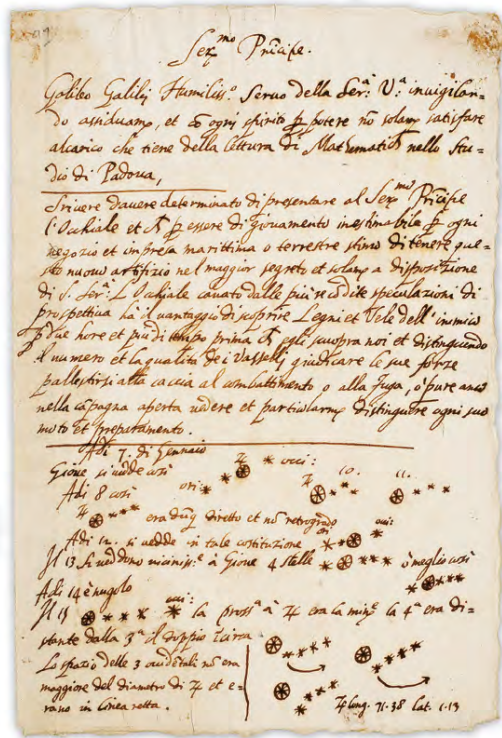 Ser.mo Prīcipe.
Galileo Galilej Humiliss.o Servo della Ser.a V.a invigilan-
do assiduam.te, et cō ogni spirito p potere nō solam.te satisfare
alcarico che tiene della lettura di Mathematich nello Stu-
dio di Padova,
Scrivere davere determinato di presentare al Ser.mo Prīcipe
l'Occhiale et p essere di giovamento inestimabile p ogni
negozio et impresa marittima o terrestre stimo di tenere que-
sto nuovo artifizio nel maggior segreto et solam.te a disposizione
di S. Ser.a L'Occhiale cavato dalle più recōdite speculazioni di
prospettiva hà il vantaggio di scoprire Legni et Vele dell'inimico
p due hore et più di tempo prima ch egli scuopra noi et distinguendo
il numero et la qualità dei Vasselli giudicare le sue forze
pallestirsi alla caccia al combattimento o alla fuga, o pure anco
nella cāpagna aperta vedere et particularm.te distinguere ogni suo
moto et preparamento.
Adi 7. di Gennaio
Giove si vedde così ♃ occi:
Adi 8 così ori: ♃ 10. 11.
♃ era dūq diretto et nō retrogrado
Adi 12. si vedde in tale costituzione ori occi:
Il 13 si veddono vicinis.e à Giove 4 stelle ò meglio così
Adi 14 è nugolo
Il 15 occi: la pross.a à ♃ era la min.e la 4.a era di-
stante dalla 3.a il doppio īcirca
Lo spazio delle 3 occidētali nō era
maggiore del diametro di ♃ et e-
rano in linea retta.
♃ long. 71.38 lat. 1.13